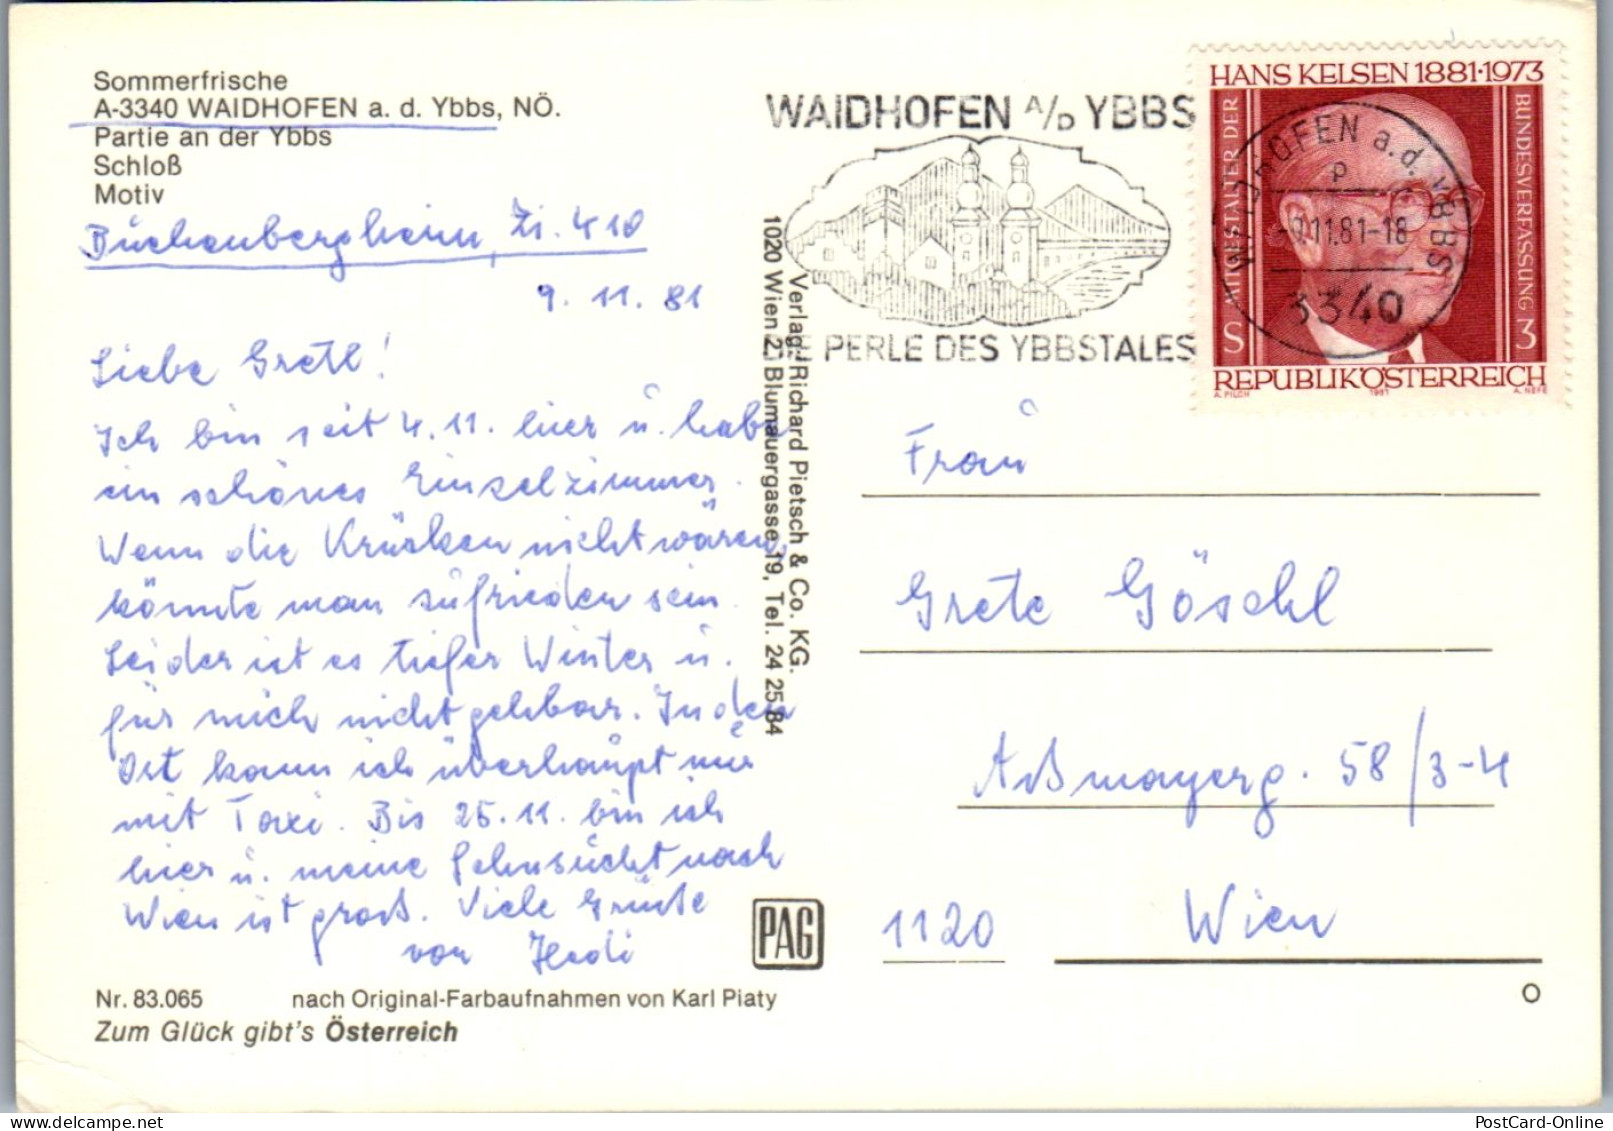 Sommerfrische
A-3340 WAIDHOFEN a. d. Ybbs, NÖ.
Partie an der Ybbs
Schloß
Motiv
Buchenbergheim, Zi. 410
9. 11. 81
Liebe Gretl!
Ich bin seit 4.11. hier u. habe
ein schönes Einzelzimmer.
Wenn die Krücken nicht wären,
könnte man zufrieden sein.
Leider ist es tiefer Winter u.
für mich nicht gehbar. In den
Ort kann ich überhaupt nur
mit Taxi. Bis 25.11. bin ich
hier u. meine Sehnsucht nach
Wien ist groß. Viele Grüße
von Hedi
Nr. 83.065 nach Original-Farbaufnahmen von Karl Piaty
Zum Glück gibt's Österreich
Verlag: Richard Pietsch & Co. KG.
1020 Wien 2, Blumauergasse 19, Tel. 24 25 84
PAG
WAIDHOFEN A/D YBBS
PERLE DES YBBSTALES
HANS KELSEN 1881·1973
MITGESTALTER DER
BUNDESVERFASSUNG
S 3
REPUBLIK ÖSTERREICH
A. PILCH 1981 A. NEFE
WAIDHOFEN a. d. YBBS
p
-9.11.81-18
3340
Frau
Grete Göschl
Aßmayerg. 58/3-4
1120 Wien
O
PostCard-Online